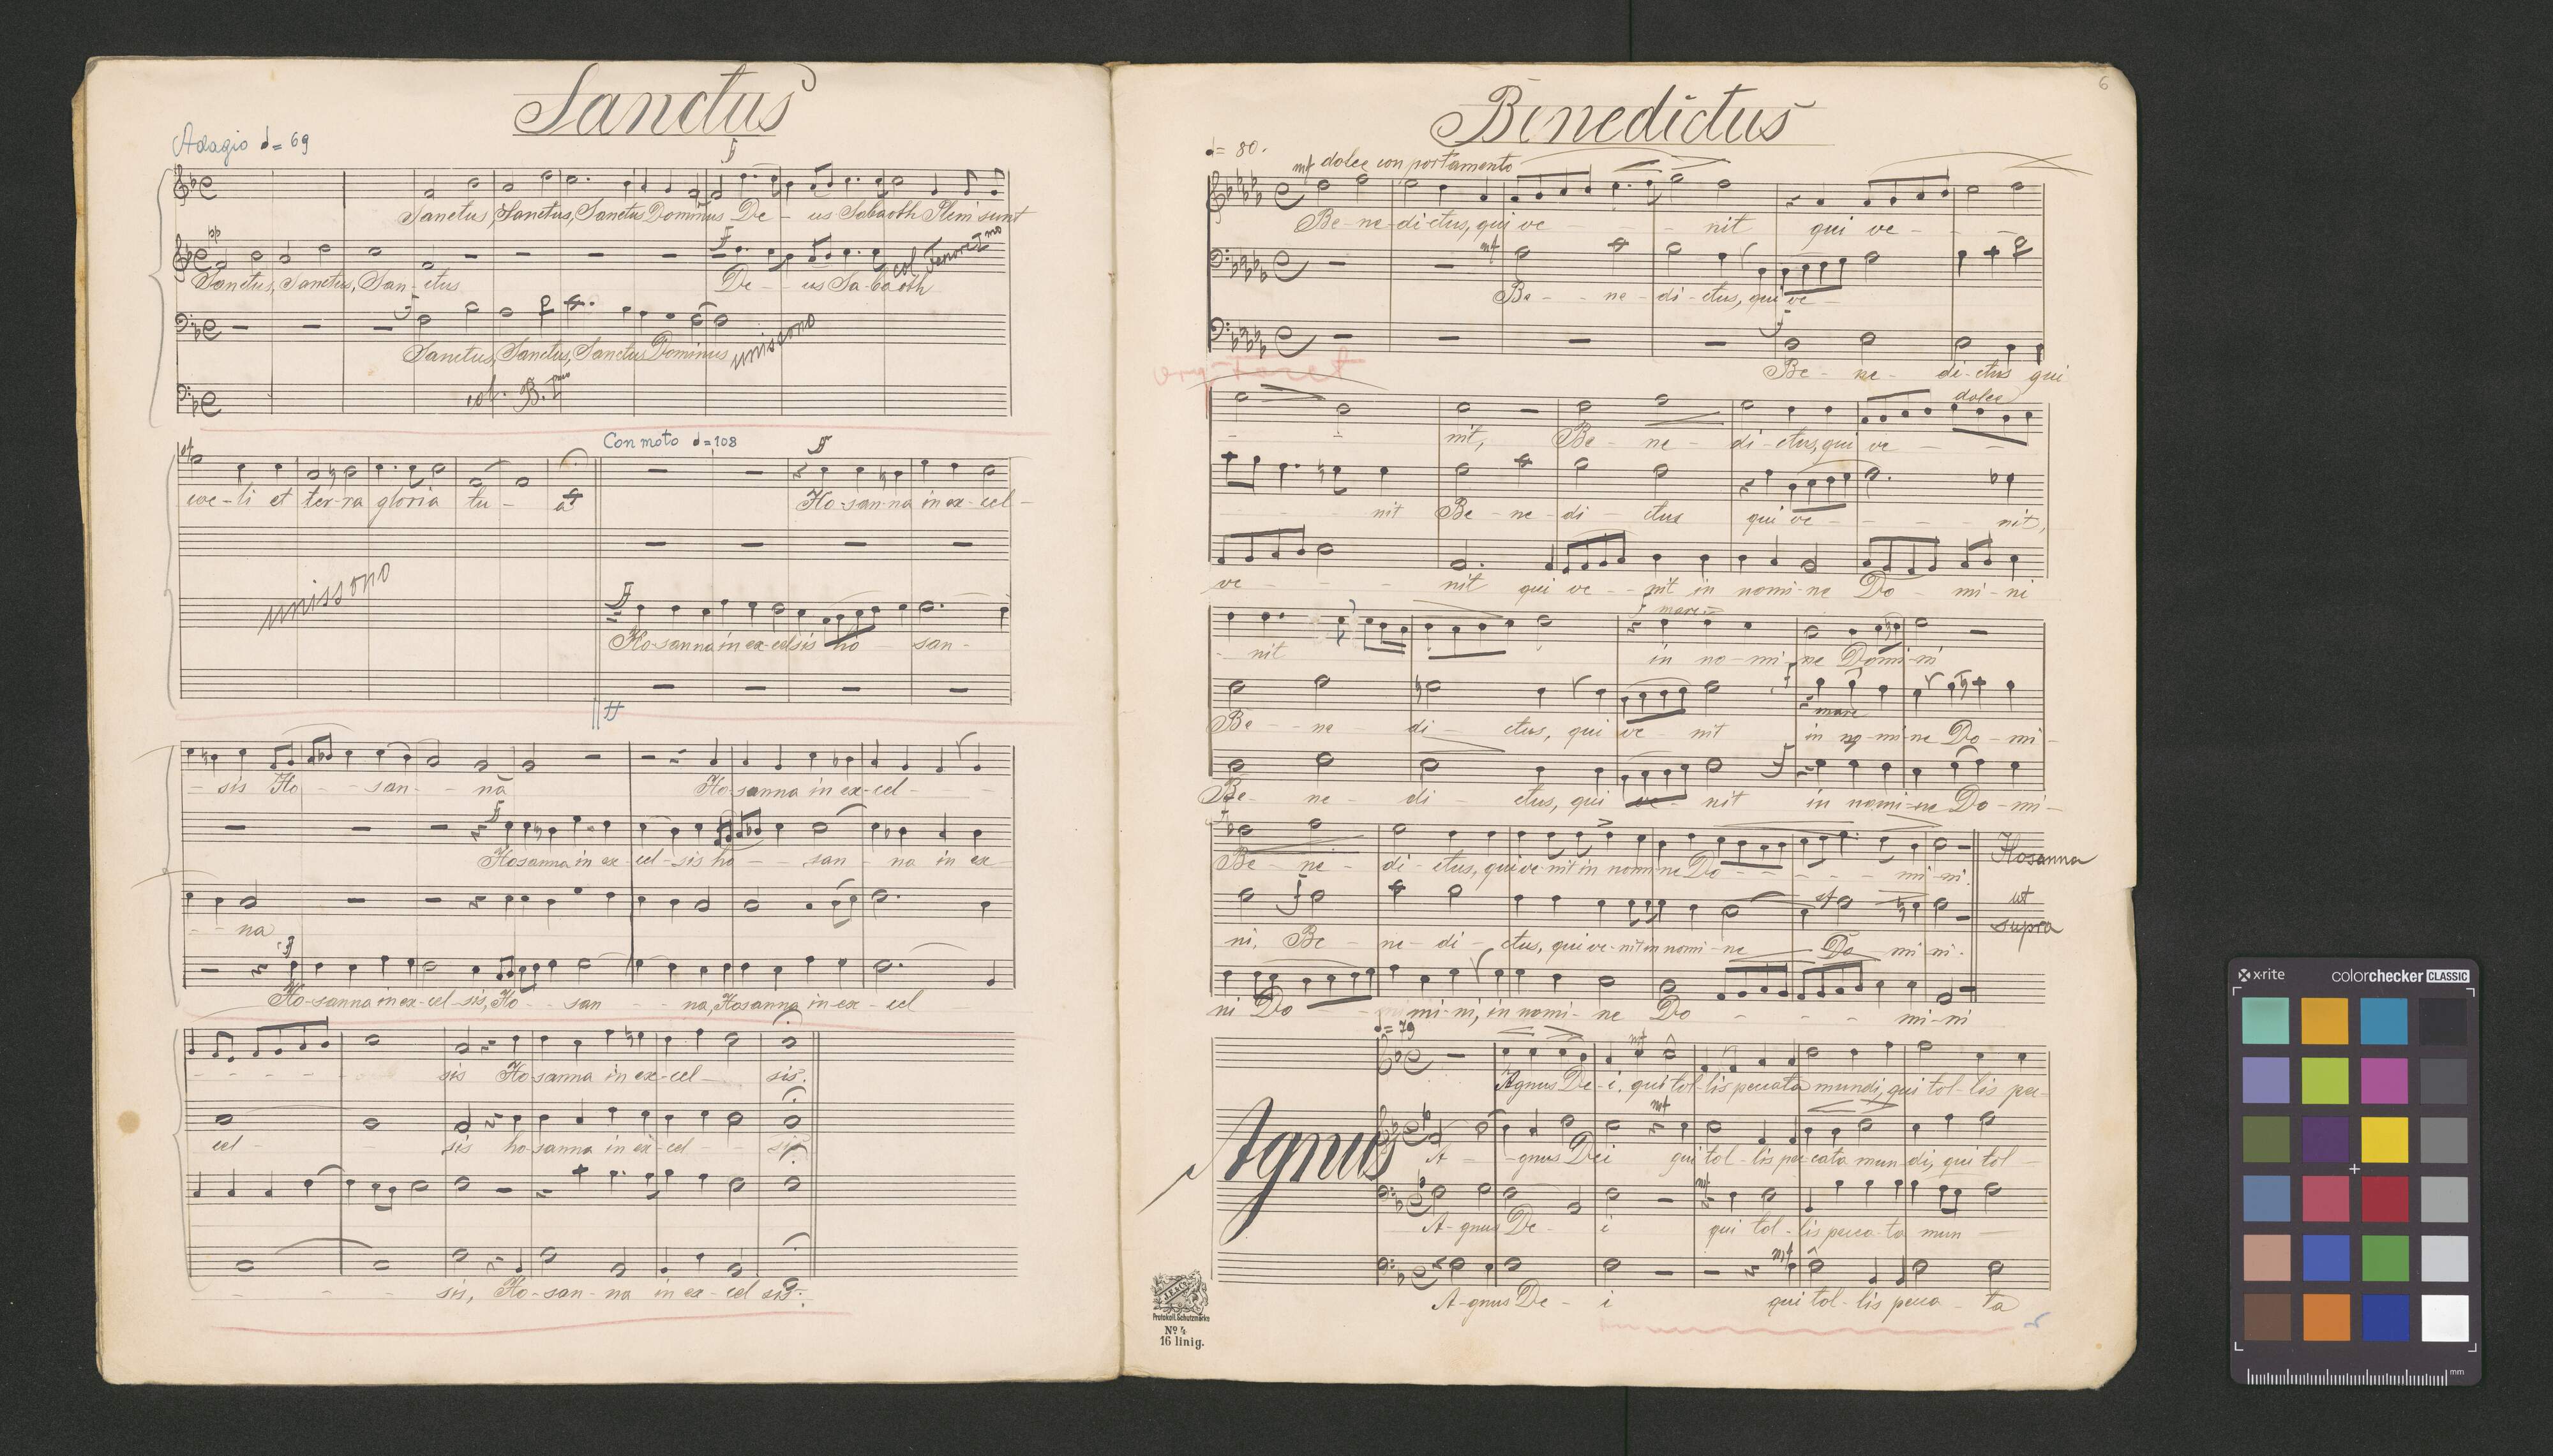 Sanctus
Adagio 𝅗𝅥= 69
ff
Sanctus, Sanctus, Sanctus Dominus De - us Sabaoth Pleni sunt
pp
f
col Tenore I mo
Sanctus, Sanctus, San - ctus De - - us Sa-baoth
f
Sanctus, Sanctus, Sanctus Dominus unissono
col. B. pmo
Con moto 𝅗𝅥=108
ff
coe-li et ter-ra gloria tu - a Ho-san-na in ex-cel-
unissono
ff
Ho-sanna in ex-celsis ho san-
- sis Ho - - san - - na Ho-sanna in ex-cel - - -
f
Hosanna in ex-cel-sis ho - - san - na in ex
- - na
ff
Ho-sanna in ex-cel-sis, Ho - - san - - na, Hosanna in ex - cel
- - - - - - sis Ho-sanna in ex-cel - sis.
cel - - sis ho-sanna in ex-cel - - sis
- - - - sis, Ho-san-na in ex-cel sis.
6
Benedictus
♩= 80.
mf dolce con portamento
Be-ne-dictus, qui ve - - - nit qui ve - - -
mf
Be - - ne-di-ctus, qui ve -
f
Be - ne - di-ctus qui
dolce
- - nit, Be - ne - di-ctus, qui ve - -
- - - nit Be - ne - di - ctus qui ve - - - - nit,
ve - - - nit qui ve - - nit in nomi-ne Do - mi-ni
f marc.
- nit in no-mi-ne Domi-ni
f
marc.
Be - - ne di - ctus, qui ve - nit in no-mi-ne Do-mi-
f
Be - ne - di - ctus, qui ve - nit in nomi-ne Do-mi-
Be - ne - di - ctus, qui ve-nit in nomi-ne Do - - - - - mi-ni. Hosanna
f
sf
ut
supra
ni, Be - ne-di - ctus, qui ve-nit in nomi-ne Do mi ni.
ni Do - - mi-ni, in nomi-ne Do - - - - mi-ni
♩= 79
mf
Agnus De-i. qui tol-lis peccata mundi, qui tol-lis pec-
mf
Agnus
A - -gnus Dei qui tol-lis pec-cata mun-di, qui tol-
mf
A-gnus De- i qui tol-lis pecca-ta mun -
mf
A-gnus De - i qui tol-lis pecca - ta
Protokoll. Schutzmarke
No 4
16 linig.
x-rite
colorchecker CLASSIC
mm